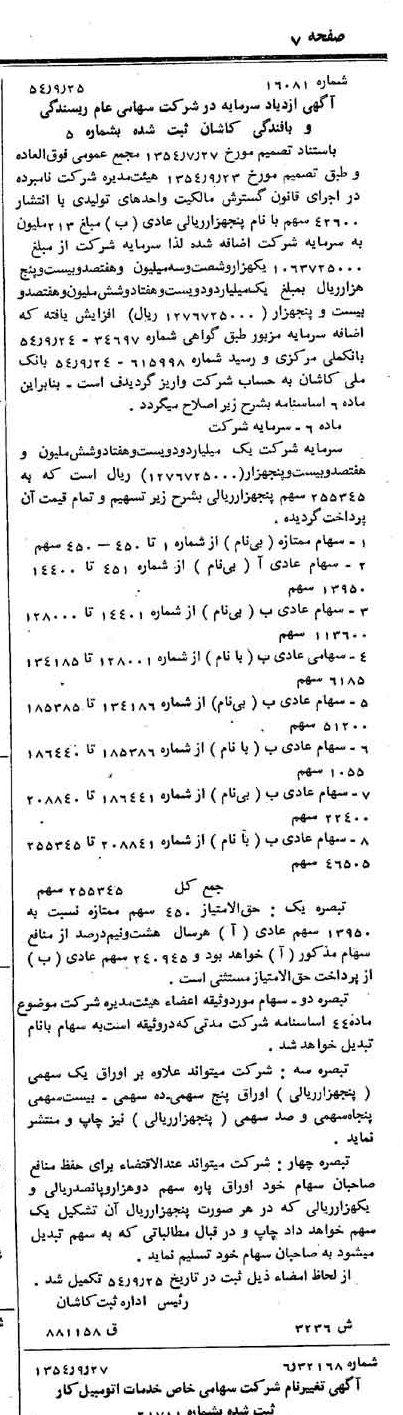 صفحه ۷
شماره ۱۶۰۸۱ ۵۴٫۹٫۲۵
آگهی ازدیاد سرمایه در شرکت سهامی عام ریسندگی
و بافندگی کاشان ثبت شده بشماره ۵
باستناد تصمیم مورخ ۱۳۵٤٫۷٫۲۷ مجمع عمومی فوق‌العاده
و طبق تصمیم مورخ ۱۳۵٤٫۹٫۲۳ هیئت‌مدیره شرکت نامبرده
در اجرای قانون گسترش مالکیت واحدهای تولیدی با انتشار
۴۲۶۰۰ سهم با نام پنجهزارریالی عادی (ب) مبلغ ۲۱۳ملیون
به سرمایه شرکت اضافه شده لذا سرمایه شرکت از مبلغ
۱۰۶۳۷۲۵۰۰۰ یکهزاروشصت‌وسه‌میلیون وهفتصدوبیست‌وپنج
هزارریال بمبلغ یک‌میلیاردودویست‌وهفتادوشش‌ملیون‌وهفتصدو
بیست و پنجهزار (۱۲۷۶۷۲۵۰۰۰ ریال) افزایش یافته که
اضافه سرمایه مزبور طبق گواهی شماره ۳٤۶۹۷ - ۵٤٫۹٫۲٤
بانکملی مرکزی و رسید شماره ۶۱۵۹۹۸ - ۵٤٫۹٫۲٤ بانک
ملی کاشان به حساب شرکت واریز گردیدف است - بنابراین
ماده ۶ اساسنامه بشرح زیر اصلاح میگردد .
ماده ۶ - سرمایه شرکت
سرمایه شرکت یک میلیاردودویست‌وهفتادوشش‌ملیون و
هفتصدوبیست‌وپنجهزار(۱۲۷۶۷۲۵۰۰۰) ریال است که به
۲۵۵۳٤۵ سهم پنجهزارریالی بشرح زیر تسهیم و تمام قیمت آن
پرداخت گردیده .
۱ - سهام ممتازه ( بی‌نام ) از شماره ۱ تا ٤۵۰ – ٤۵۰ سهم
۲ - سهام عادی آ ( بی‌نام ) از شماره ٤۵۱ تا ۱٤٤۰۰
۱۳۹۵۰ سهم
۳ - سهام عادی ب ( بی‌نام ) از شماره ۱٤٤۰۱ تا ۱۲۸۰۰۰
۱۱۳۶۰۰ سهم
٤ - سهامی عادی ب ( با نام ) از شماره ۱۲۸۰۰۱ تا ۱۳٤۱۸۵
۶۱۸۵ سهم
۵ - سهام عادی ب ( بی‌نام) از شماره ۱۳٤۱۸۶ تا ۱۸۵۳۸۵
۵۱۲۰۰ سهم
۶ - سهام عادی ب ( با نام ) از شماره ۱۸۵۳۸۶ تا ۱۸۶٤٤۰
۱۰۵۵ سهم
۷ - سهام عادی ب ( بی‌نام ) از شماره ۱۸۶٤٤۱ تا ۲۰۸۸٤۰
۲۲٤۰۰ سهم
۸ - سهام عادی ب ( با نام ) از شماره ۲۰۸۸٤۱ تا ۲۵۵۳٤۵
٤۶۵۰۵ سهم
جمع کل ۲۵۵۳٤۵ سهم
تبصره یک : حق‌الامتیاز ٤۵۰ سهم ممتازه نسبت به
۱۳۹۵۰ سهم عادی ( آ ) هرسال هشت‌ونیم‌درصد از منافع
سهام مذکور ( آ ) خواهد بود و ۲٤۰۹٤۵ سهم عادی ( ب )
از پرداخت حق‌الامتیاز مستثنی است .
تبصره دو - سهام موردوثیقه اعضاء هیئت‌مدیره شرکت موضوع
ماده٤٤ اساسنامه شرکت مدتی‌که‌دروثیقه است‌به سهام بانام
تبدیل خواهد شد .
تبصره سه : شرکت میتواند علاوه بر اوراق یک سهمی
( پنجهزارریالی ) اوراق پنج سهمی-ده سهمی - بیست‌سهمی
پنجاه‌سهمی و صد سهمی ( پنجهزارریالی ) نیز چاپ و منتشر
نماید .
تبصره چهار : شرکت میتواند عندالاقتضاء برای حفظ منافع
صاحبان سهام خود اوراق پاره سهم دوهزاروپانصدریالی و
یکهزارریالی که در هر صورت پنجهزارریال آن تشکیل یک
سهم خواهد داد چاپ و در قبال مطالباتی که به سهم تبدیل
میشود به صاحبان سهام خود تسلیم نماید .
از لحاظ امضاء ذیل ثبت در تاریخ ۵٤٫۹٫۲۵ تکمیل شد .
رئیس اداره ثبت کاشان
ش ۳۲۳۶ ق ۸۸۱۱۵۸
شماره ۶٫۳۲۱۶۸ ۱۳۵٤٫۹٫۲۷
آگهی تغییرنام شرکت سهامی خاص خدمات اتومبیل کار
ثبت شده بشماره